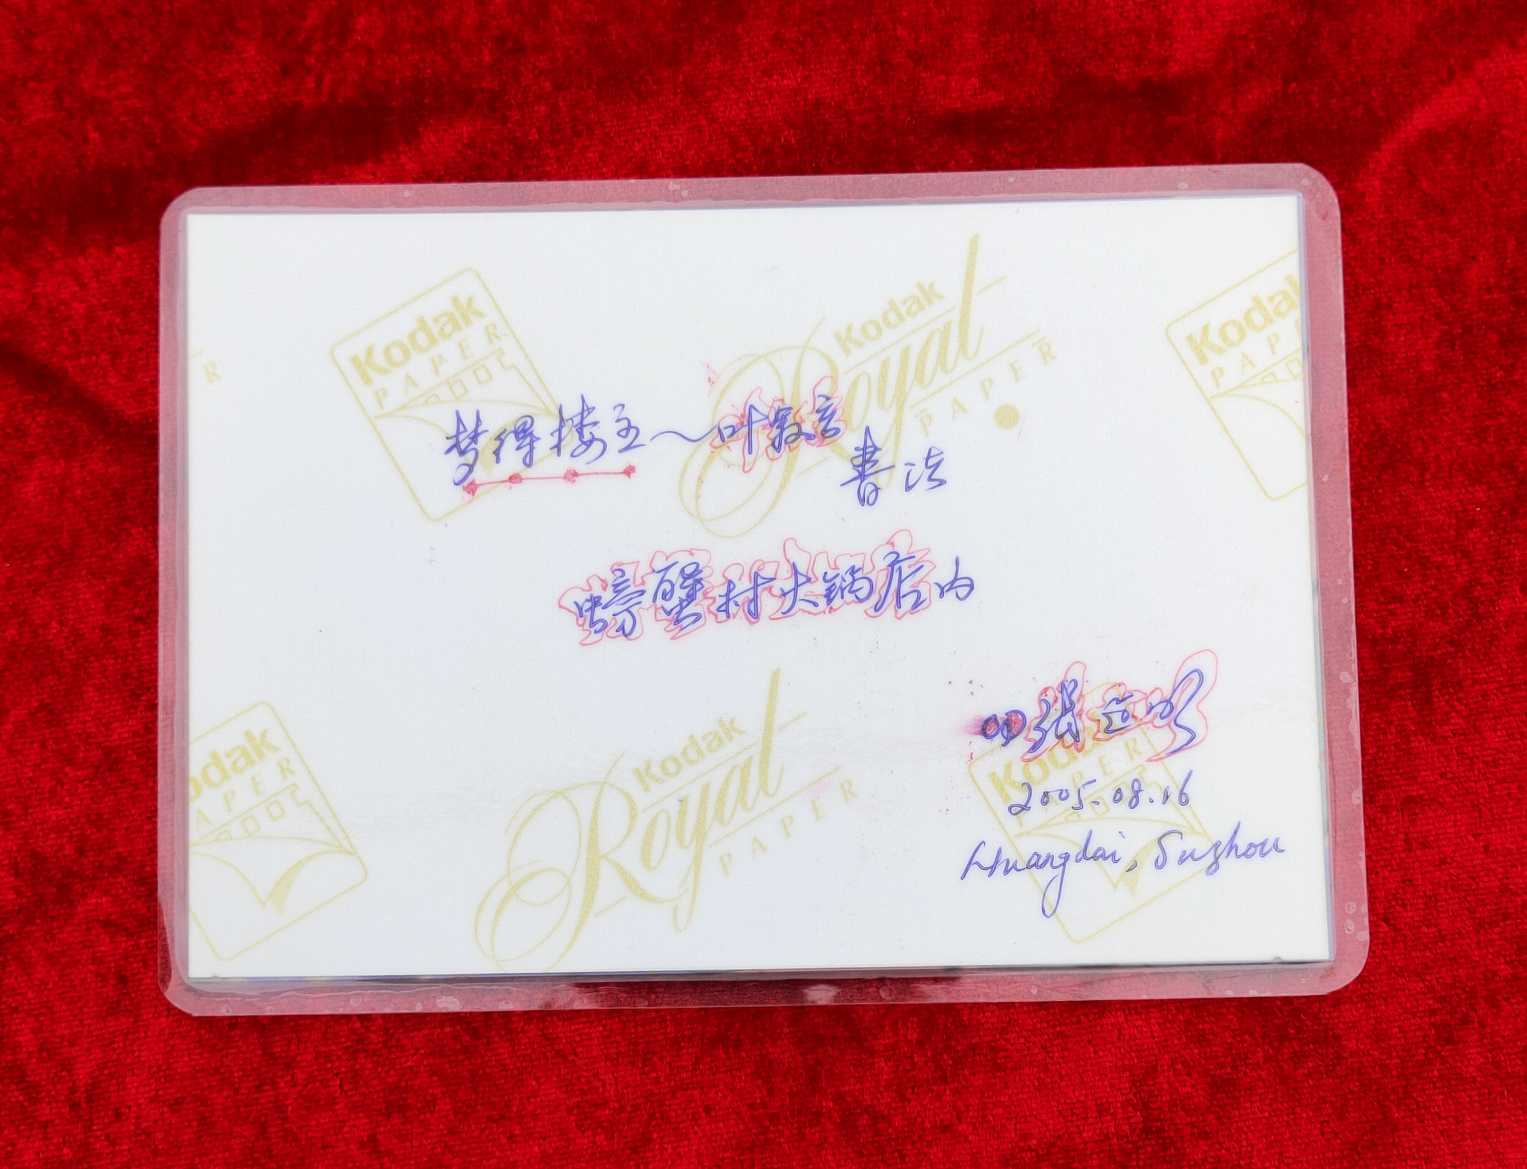 Kodak
PAPER
Kodak
Royal
PAPER
Kodak
PAPER
R
梦得楼主～叶放言
書法
螃蟹村火锅店内
张
2005.08.16
Huangdai, Suzhou
Kodak
Royal
PAPER
odak
APER
Kodak
PAPER